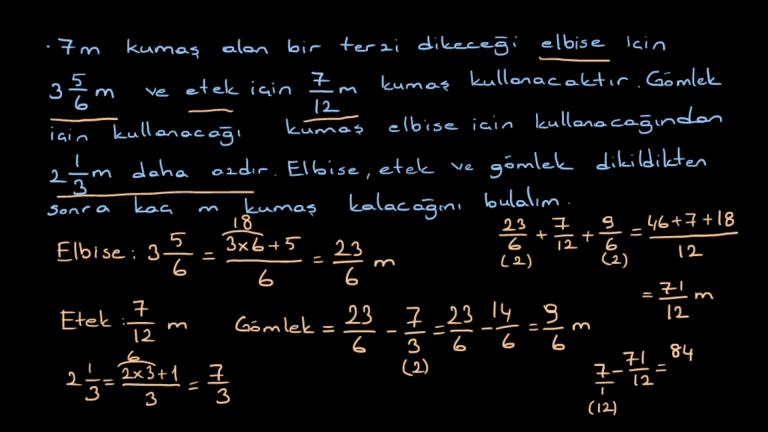 . 7m kumaş alan bir terzi dikeceği elbise için
3 5/6 m ve etek için 7/12 m kumaş kullanacaktır. Gömlek
için kullanacağı kumaş elbise için kullanacağından
2 1/3 m daha azdır. Elbise, etek ve gömlek dikildikten
sonra kaç m kumaş kalacağını bulalım.
Elbise: 3 5/6 = (3x6+5)/6 = 23/6 m
18
Etek: 7/12 m
Gömlek = 23/6 - 7/3 = 23/6 - 14/6 = 9/6 m
(2)
2 1/3 = (2x3+1)/3 = 7/3
6
23/6 + 7/12 + 9/6 = (46+7+18)/12
(2) (2)
= 71/12 m
7/1 - 71/12 = 84
(12)